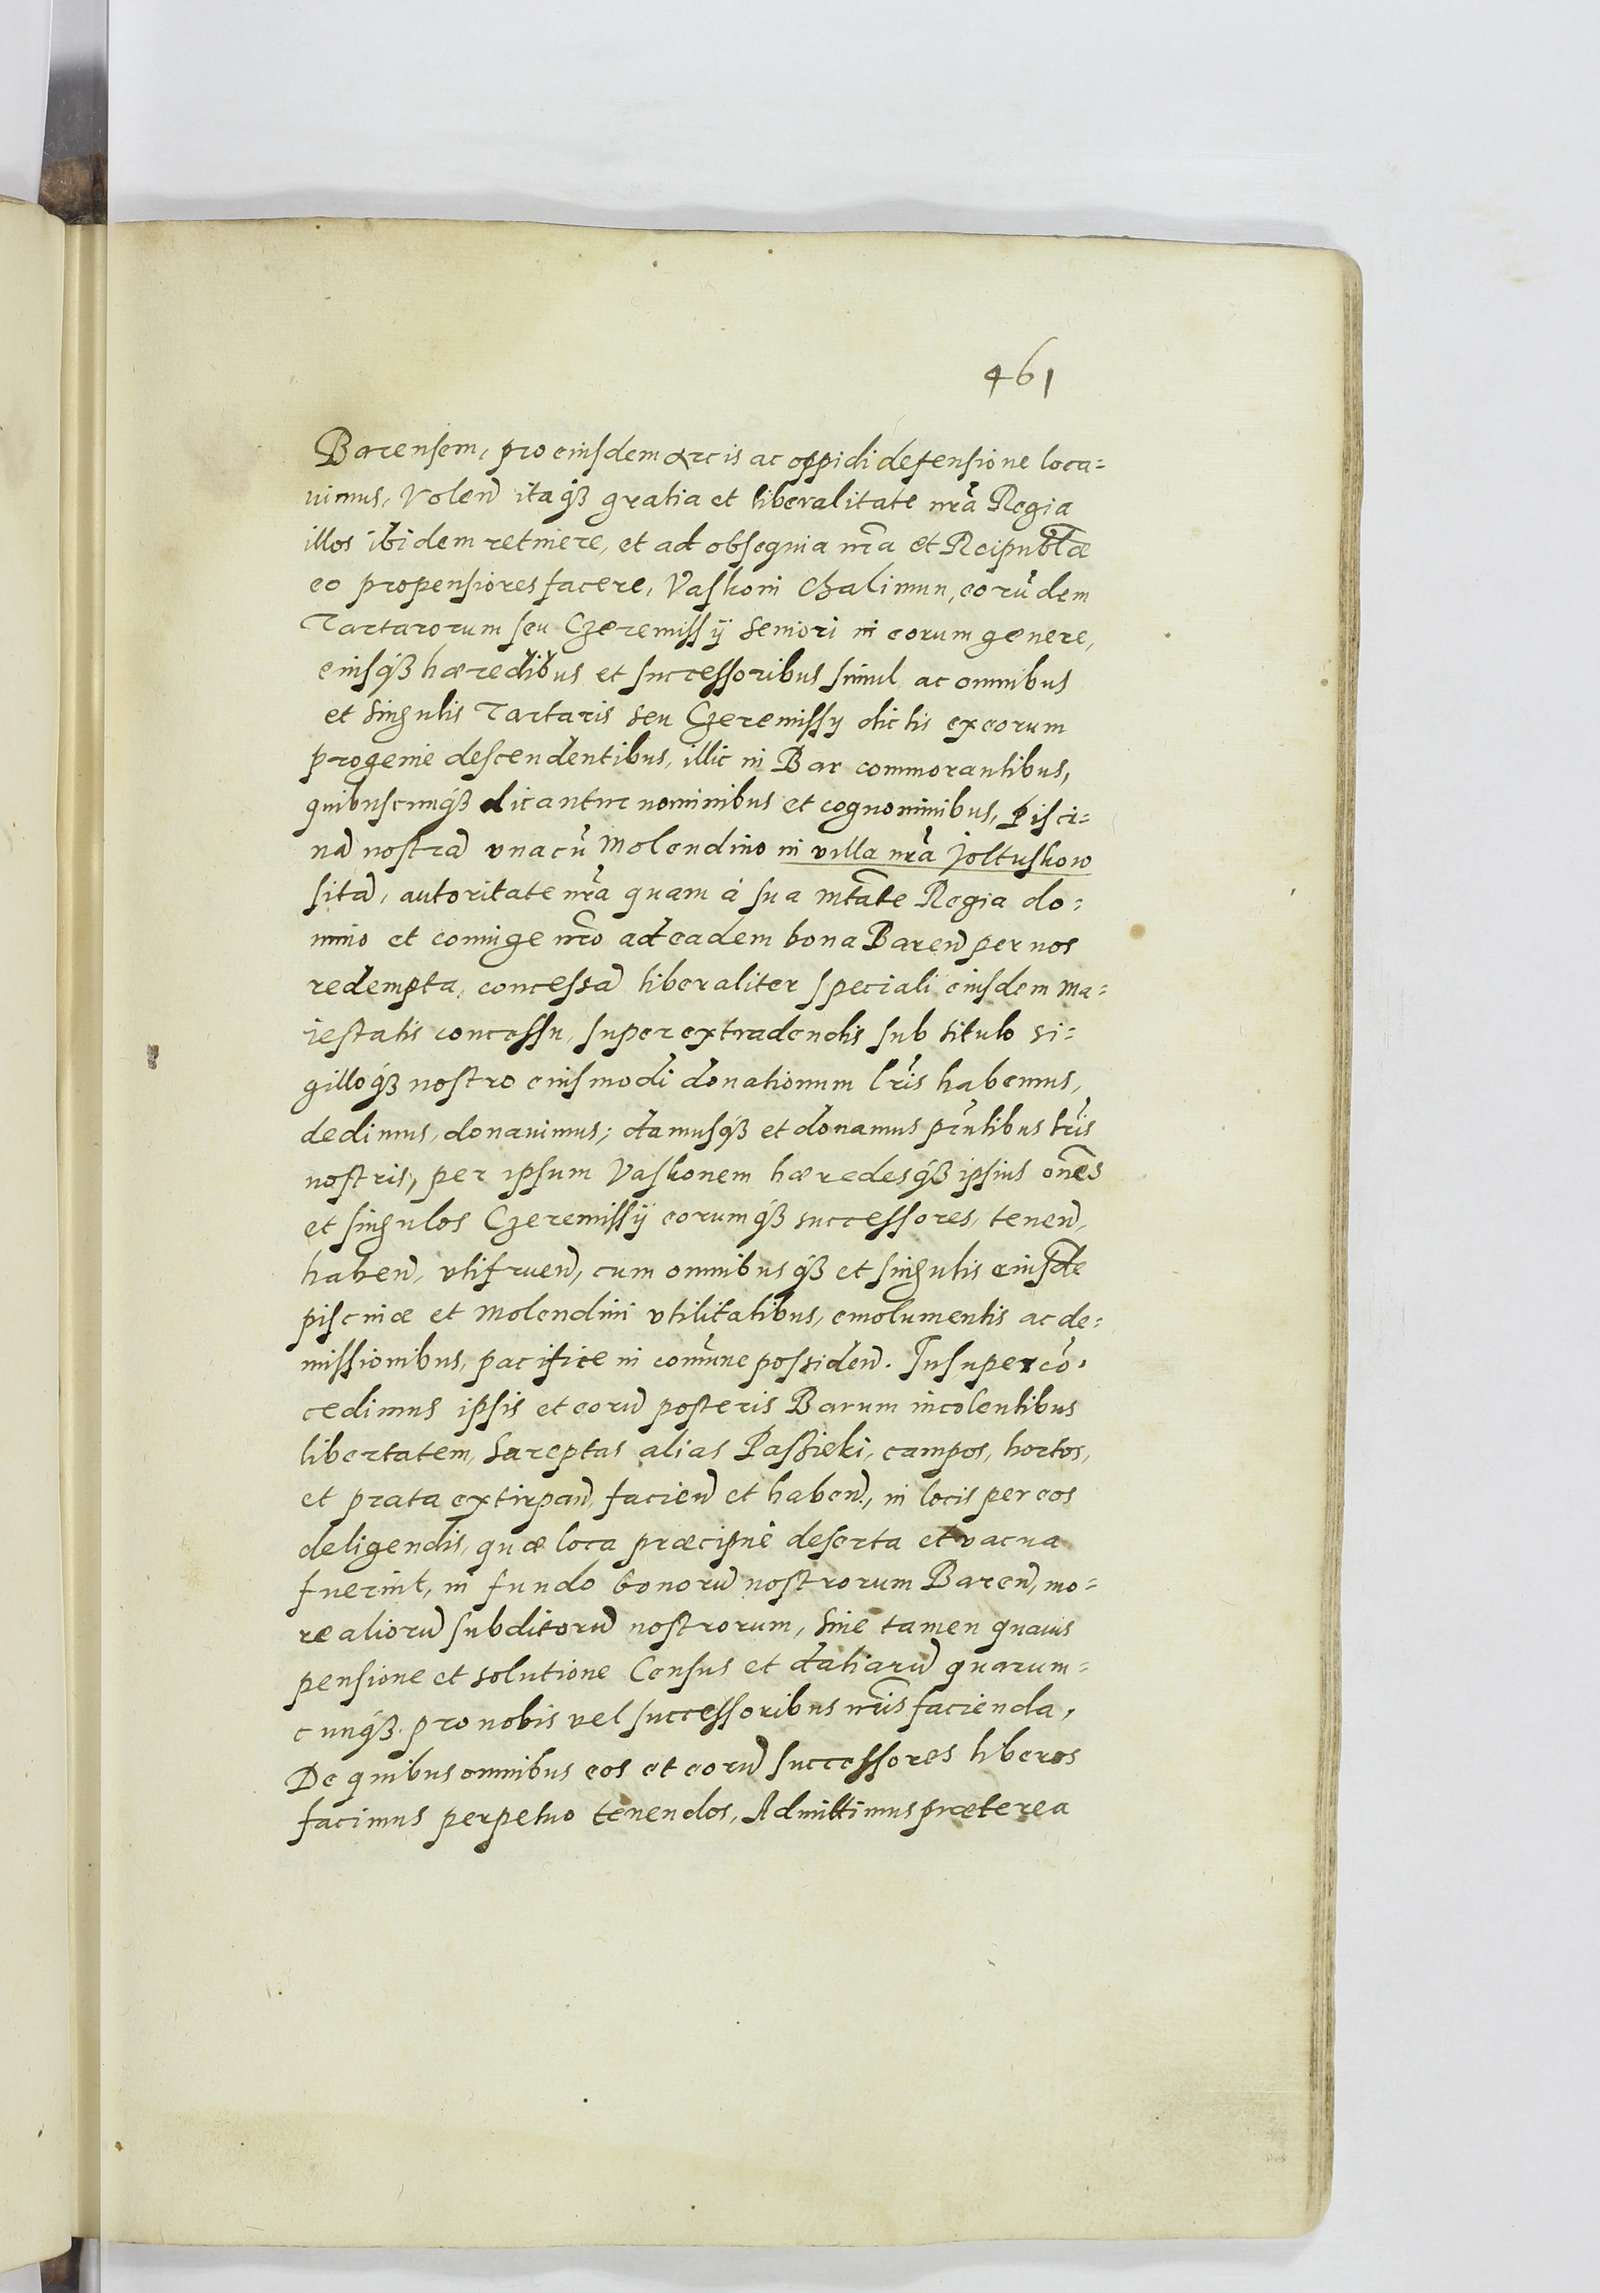 461
Barensem, pro eiusdem arcis ac oppidi defensione loca=
uimus, Volen̄ itaqꝫ gratia et liberalitate nr̄a Regia
illos ibidem retinere, et ad obsequia nr̄a et Reipubl̄æ
eo propensiores facere, Vaskoni Chalimun, eorūdem
Tartarorum seu Czeremissÿ Seniori in eorum genere,
eiusqꝫ hæredibus et successoribus simul ac omnibus
et singulis Tartaris seu Czeremissy dictis ex eorum
progenie descendentibus, illic in Bar commorantibus,
quibuscunqꝫ dicantur nominibus et cognominibus, Pisci=
nā nostrā vnacū Molendino in villa nr̄a Joltuskow
sitā, autoritate nr̄a quam á sua Mt̄ate Regia do=
mino et coniuge nr̄o ad eadem bona Baren̄ per nos
redempta, concessā liberaliter speciali eiusdem Ma=
iestatis concessu, super extradendis sub titulo si=
gilloqꝫ nostro eiusmodi donationum lr̄is habemus,
dedimus, donauimus; damusqꝫ et donamus pn̄tibus lr̄is
nostris, per ipsum Vaskonem hæredesqꝫ ipsius on̄es
et singulos Czeremissÿ eorumqꝫ successores, tenen̄,
haben̄, vtifruen̄, cum omnibusqꝫ et singulis eiusdē
piscinæ et Molendini vtilitatibus, emolumentis ac de=
missionibus, pacifice in com̄une possiden̄. Insuper cō=
cedimus ipsis et eorū posteris Barum incolentibus
libertatem, Sareptas alias Passieki, campos, hortos,
et prata extirpan̄, facien̄ et haben̄, in locis per eos
deligendis, quæ loca præcipuè deserta et vacua
fuerint, in fundo bonorū nostrorum Baren̄, mo=
re aliorū subditorū nostrorum, Sine tamen quauis
pensione et solutione Census et datiarū quarum=
cunqꝫ pro nobis vel successoribus nr̄is facienda,
De quibus omnibus eos et eorū successores liberos
facimus perpetuo tenendos, Admittimus præterea